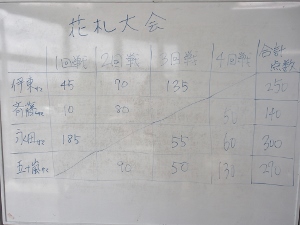 花札大会
1回戦 2回戦 3回戦 4回戦 合計点数
伊東さん 45 70 135 250
斉藤さん 10 80 50 140
永田さん 185 55 60 300
五十嵐さん 90 50 130 270